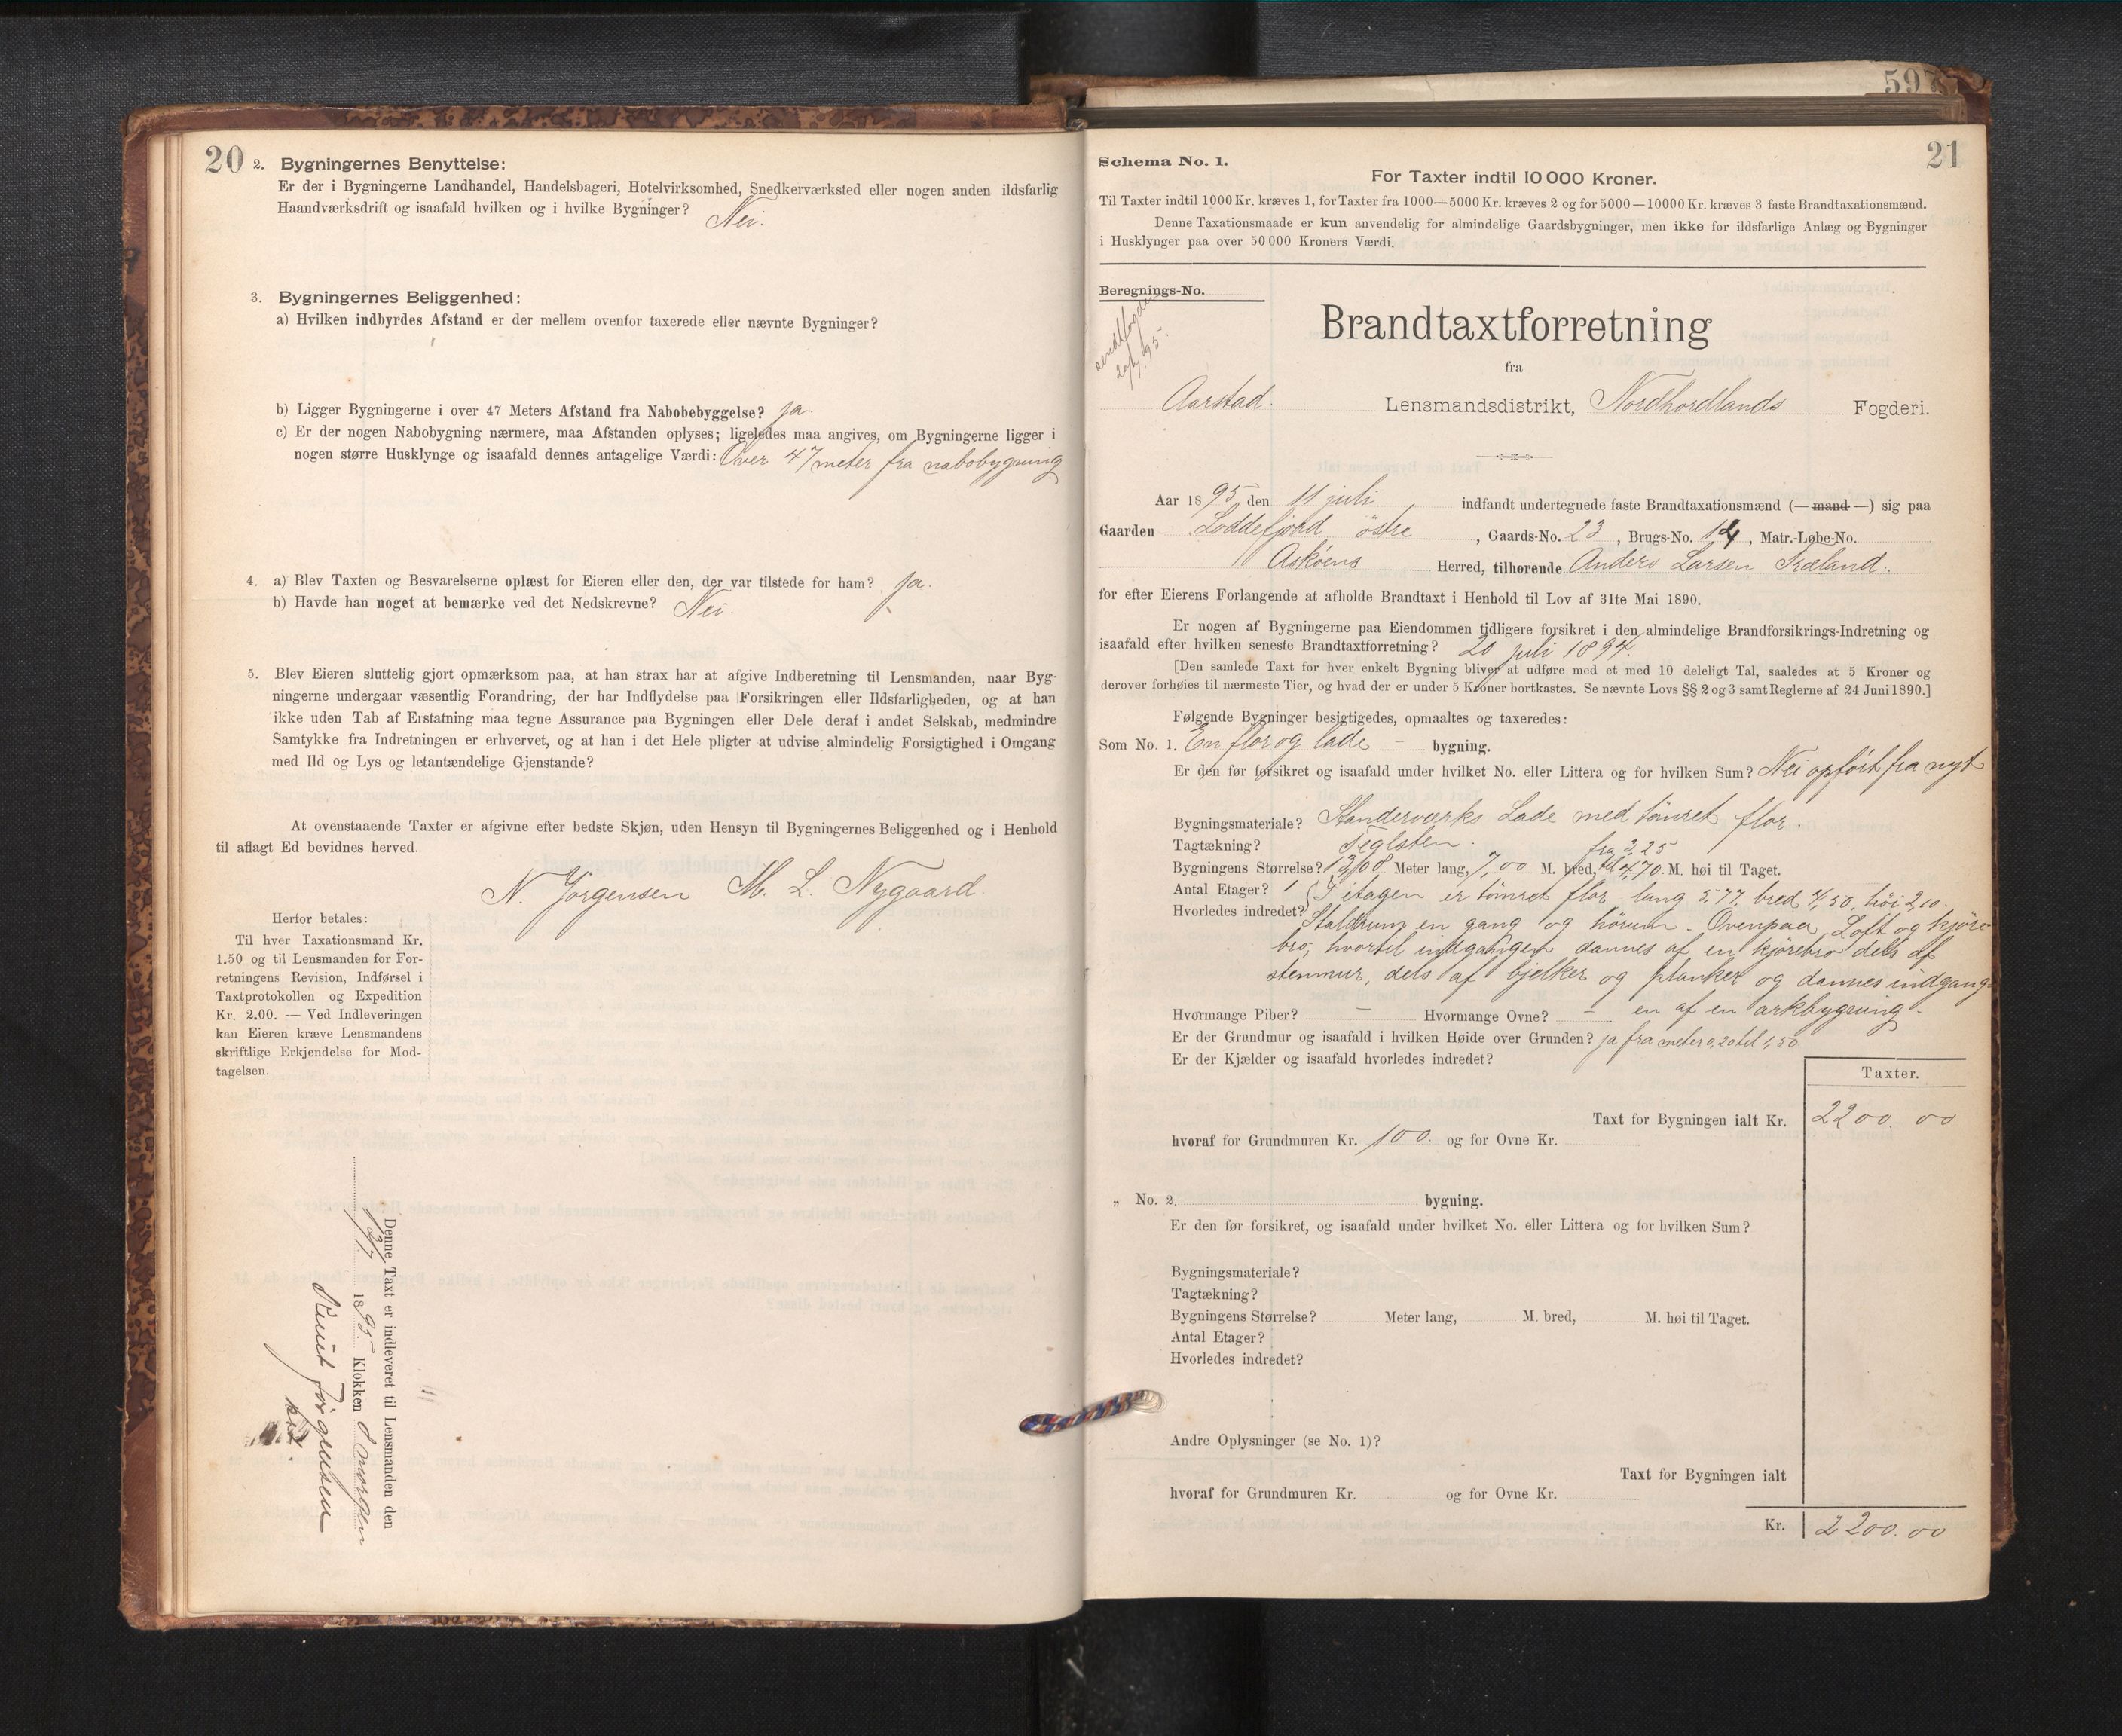 20
2. Bygningernes Benyttelse:
Er der i Bygningerne Landhandel, Handelsbageri, Hotelvirksomhed, Snedkerværksted eller nogen anden ildsfarlig
Haandværksdrift og isaafald hvilken og i hvilke Bygninger? Nei.
3. Bygningernes Beliggenhed:
a) Hvilken indbyrdes Afstand er der mellem ovenfor taxerede eller nævnte Bygninger?
b) Ligger Bygningerne i over 47 Meters Afstand fra Nabobebyggelse? ja.
c) Er der nogen Nabobygning nærmere, maa Afstanden oplyses; ligeledes maa angives, om Bygningerne ligger i
nogen større Husklynge og isaafald dennes antagelige Værdi: Over 47 meter fra nabobygning
4. a) Blev Taxten og Besvarelserne oplæst for Eieren eller den, der var tilstede for ham? ja.
b) Havde han noget at bemærke ved det Nedskrevne? Nei.
5. Blev Eieren sluttelig gjort opmærksom paa, at han strax har at afgive Indberetning til Lensmanden, naar Byg-
ningerne undergaar væsentlig Forandring, der har Indflydelse paa Forsikringen eller Ildsfarligheden, og at han
ikke uden Tab af Erstatning maa tegne Assurance paa Bygningen eller Dele deraf i andet Selskab, medmindre
Samtykke fra Indretningen er erhvervet, og at han i det Hele pligter at udvise almindelig Forsigtighed i Omgang
med Ild og Lys og letantændelige Gjenstande?
At ovenstaaende Taxter er afgivne efter bedste Skjøn, uden Hensyn til Bygningernes Beliggenhed og i Henhold
til aflagt Ed bevidnes herved.
N. Jørgensen M. L. Nygaard.
Herfor betales:
Til hver Taxationsmand Kr.
1.50 og til Lensmanden for For-
retningens Revision, Indførsel i
Taxtprotokollen og Expedition
Kr. 2.00. — Ved Indleveringen
kan Eieren kræve Lensmandens
skriftlige Erkjendelse for Mod-
tagelsen.
Denne Taxt er indleveret til Lensmanden den
13/7 1895. Klokken 8 morgen
Knut Jørgensen
21
597
Schema No. 1.
For Taxter indtil 10 000 Kroner.
Til Taxter indtil 1000 Kr. kræves 1, for Taxter fra 1000—5000 Kr. kræves 2 og for 5000—10000 Kr. kræves 3 faste Brandtaxationsmænd.
Denne Taxationsmaade er kun anvendelig for almindelige Gaardsbygninger, men ikke for ildsfarlige Anlæg og Bygninger
i Husklynger paa over 50 000 Kroners Værdi.
Beregnings-No.
20/7 95.
Brandtaxtforretning
fra
Aarstad. Lensmandsdistrikt, Nordhordlands Fogderi.
Aar 1895, den 11 juli indfandt undertegnede faste Brandtaxationsmænd (—mand—) sig paa
Gaarden Loddefjord østre, Gaards-No. 23, Brugs-No. 14, Matr.-Løbe-No.
Askøens Herred, tilhørende Anders Larsen Træland.
for efter Eierens Forlangende at afholde Brandtaxt i Henhold til Lov af 31te Mai 1890.
Er nogen af Bygningerne paa Eiendommen tidligere forsikret i den almindelige Brandforsikrings-Indretning og
isaafald efter hvilken seneste Brandtaxtforretning? 20 juli 1894.
[Den samlede Taxt for hver enkelt Bygning bliver at udføre med et med 10 deleligt Tal, saaledes at 5 Kroner og
derover forhøies til nærmeste Tier, og hvad der er under 5 Kroner bortkastes. Se nævnte Lovs §§ 2 og 3 samt Reglerne af 24 Juni 1890.]
Følgende Bygninger besigtigedes, opmaaltes og taxeredes:
Som No. 1. En flor og lade — bygning.
Er den før forsikret og isaafald under hvilket No. eller Littera og for hvilken Sum? Nei opført fra nyt
Bygningsmateriale? Standerværks Lade med tømret flor.
Tagtækning? Teglsten.
fra 3,25
Bygningens Størrelse? 13,08 Meter lang, 7,00 M. bred, til 4,70. M. høi til Taget.
Antal Etager? 1
Hvorledes indredet? I etagen er tømret flor lang 5,77, bred 4,50, høi 2,10.
Staldrum en gang og hørum. Ovenpaa Loft og kjøre-
bro, hvortil indgangen dannes af en kjørebro dels af
stenmur, dels af bjelker og planker og dannes indgang-
Hvormange Piber? — Hvormange Ovne? — en af en arkbygning.
Er der Grundmur og isaafald i hvilken Høide over Grunden? ja fra meter 0,20 til 1,50
Er der Kjælder og isaafald hvorledes indredet?
Taxter.
Taxt for Bygningen ialt Kr. 2200.00
hvoraf for Grundmuren Kr. 100. og for Ovne Kr.
„ No. 2 bygning.
Er den før forsikret, og isaafald under hvilket No. eller Littera og for hvilken Sum?
Bygningsmateriale?
Tagtækning?
Bygningens Størrelse? Meter lang, M. bred, M. høi til Taget.
Antal Etager?
Hvorledes indredet?
Andre Oplysninger (se No. 1)?
Taxt for Bygningen ialt
hvoraf for Grundmuren Kr. og for Ovne Kr.
Kr. 2200.00